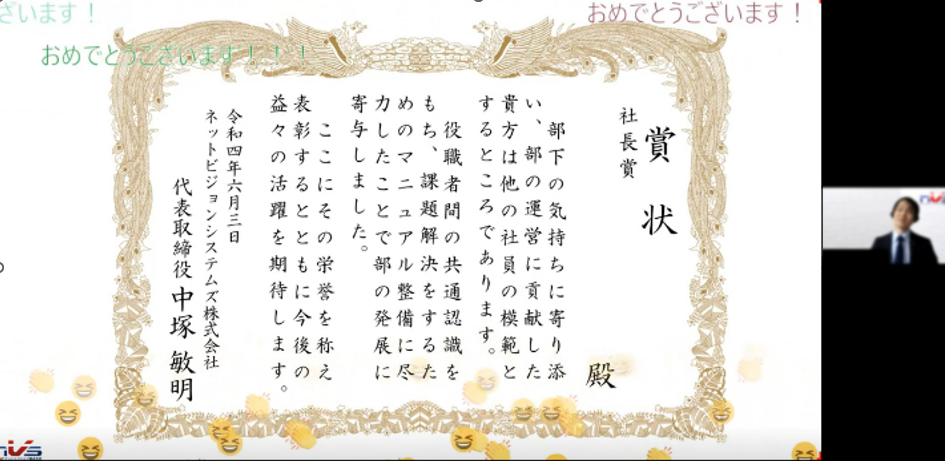 ざいます！
おめでとうございます！
おめでとうございます！！！
賞状
社長賞
殿
部下の気持ちに寄り添
い、部の運営に貢献した
貴方は他の社員の模範と
するところであります。
役職者間の共通認識を
もち、課題解決をするた
めのマニュアル整備に尽
力したことで部の発展に
寄与しました。
ここにその栄誉を称え
表彰するとともに今後の
益々の活躍を期待します。
令和四年六月三日
ネットビジョンシステムズ株式会社
代表取締役 中塚 敏明
NVS